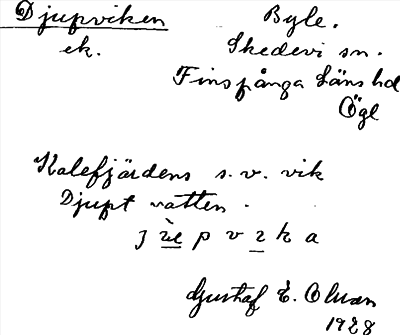 Djupviken Byle.
ek. Skedevi sn.
Finspånga Läns hd
Ögl
Kalefjärdens s.v. vik
Djupt vatten.
Gustaf E. Olsson
1928